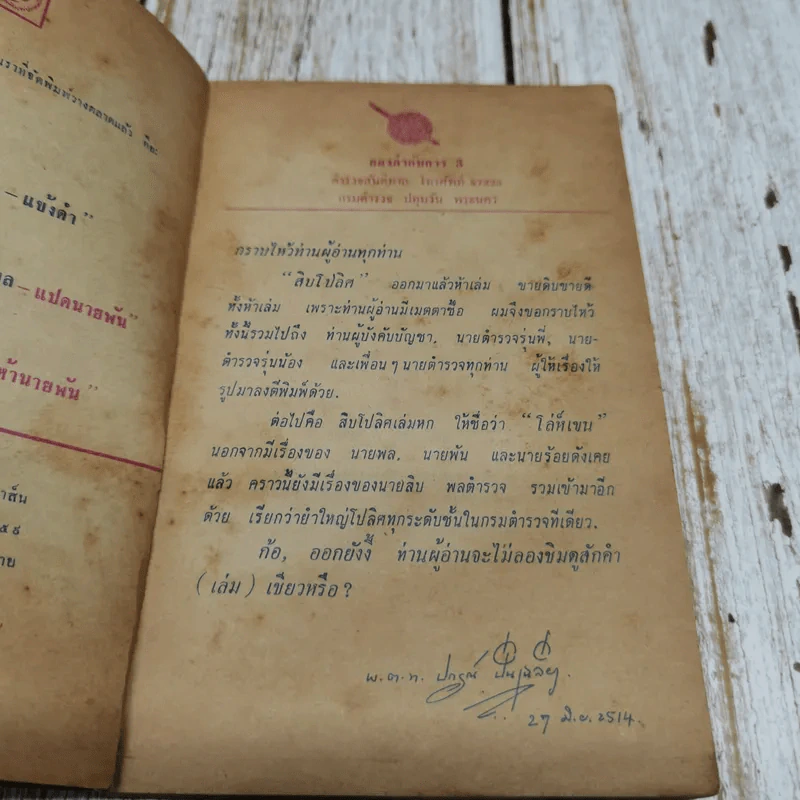 เราที่จัดพิมพ์วางตลาดแล้ว คือ
– แข้งดำ"
ล – แปดนายพัน"
ห้านายพัน"
าส็น
๕๙
าย
กองกำกับการ 3
ตำรวจสันติบาล โทรศัพท์
กรมตำรวจ ปทุมวัน พระนคร
กราบไหว้ท่านผู้อ่านทุกท่าน
"สิบโปลิศ" ออกมาแล้วห้าเล่ม ขายดิบขายดี
ทั้งห้าเล่ม เพราะท่านผู้อ่านมีเมตตาซื้อ ผมจึงขอกราบไหว้
ทั้งนี้รวมไปถึง ท่านผู้บังคับบัญชา, นายตำรวจรุ่นพี่, นาย-
ตำรวจรุ่นน้อง และเพื่อนๆ นายตำรวจทุกท่าน ผู้ให้เรื่องให้
รูปมาลงตีพิมพ์ด้วย.
ต่อไปคือ สิบโปลิศเล่มหก ให้ชื่อว่า "โล่ห์เขน"
นอกจากมีเรื่องของ นายพล, นายพัน และนายร้อยดังเคย
แล้ว คราวนี้ยังมีเรื่องของนายสิบ พลตำรวจ รวมเข้ามาอีก
ด้วย เรียกว่ายำใหญ่โปลิศทุกระดับชั้นในกรมตำรวจทีเดียว.
ก้อ, ออกยังงี้ ท่านผู้อ่านจะไม่ลองชิมดูสักคำ
(เล่ม) เชียวหรือ?
พ.ต.ท. ปกรณ์ ปิ่นเฉลียว.
27 มิ.ย. 2514.